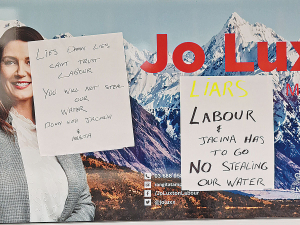 Jo Lux
LIES LABOUR LIES
CAN'T TRUST
LABOUR
YOU WILL NOT STEAL
OUR
WATER
DOWN WITH JACINDA
&
LIARS
LABOUR
&
JACINA HAS
TO GO
NO STEALING
OUR WATER
03 688
rangitata
/JoLuxtonLabour
@joluxx